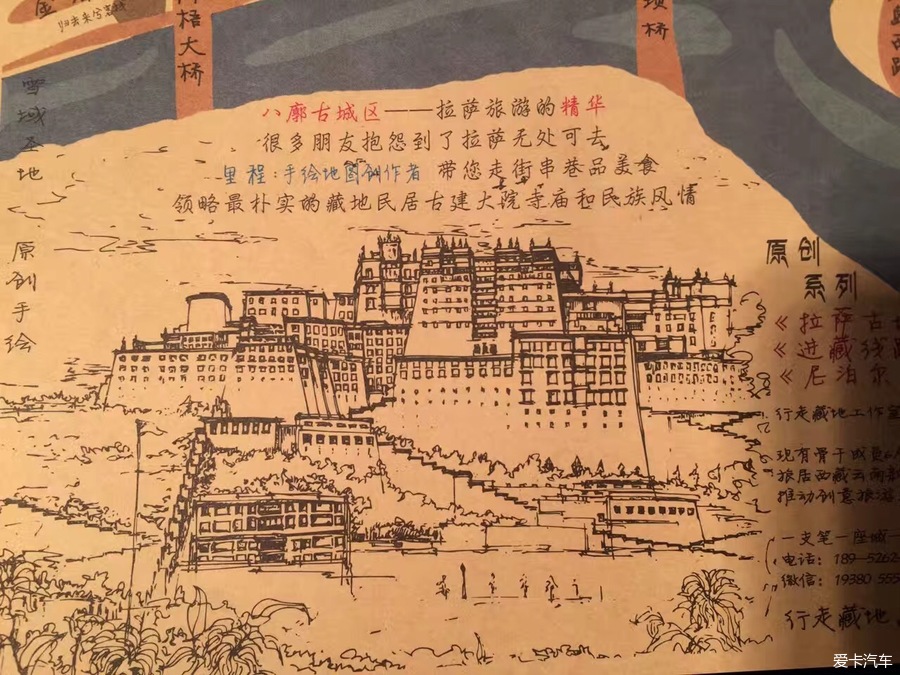 归去来兮客栈
梧大桥
坝桥
雪域圣地
原创手绘
八廓古城区——拉萨旅游的精华
很多朋友抱怨到了拉萨无处可去
里程：手绘地图创作者 带您走街串巷品美食
领略最朴实的藏地民居古建大院寺庙和民族风情
原创
系列
《拉萨古
《进藏线路
《尼泊尔
行走藏地工作室
现有骨干成员
旅居西藏云南
推动创意旅游
一支笔一座城一
电话：189-5262
微信：19380 555
行走藏地
爱卡汽车